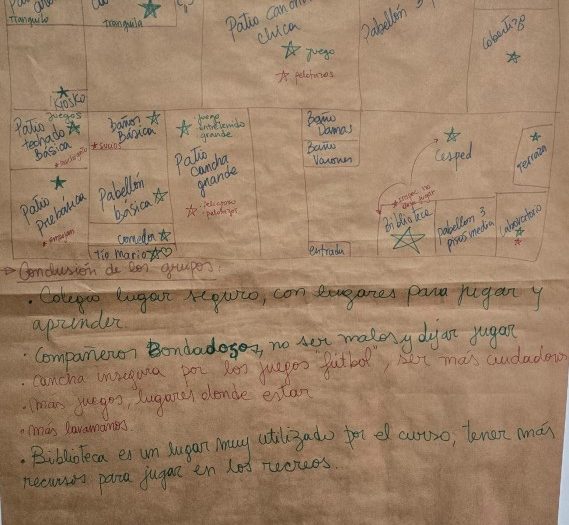 Patio
tranquilo
tranquila
Patio cancha
chica
juego
pelotazos
Pabellón
cobertizo
Kiosko
juegos
Patio
techado
Básica
Baños
Básica
sucios
juego
entretenido
grande
Patio
cancha
grande
peligroso
pelotazos
Baño
Damas
Baño
Varones
Cesped
terraza
Patio
Prebásica
empujan
Pabellón
básica
comedor
tío Mario
entrada
Biblioteca
Pabellon 3
pisos media
Laboratorio
Conclusión de los grupos:
• Colegio lugar seguro, con lugares para jugar y
aprender.
• Compañeros Bondadosos, no ser malos y dejar jugar
• cancha insegura por los juegos "fútbol", ser más cuidadosos
• más juegos, lugares donde estar
• más lavamanos.
• Biblioteca es un lugar muy utilizado por el curso, tener más
recursos para jugar en los recreos.